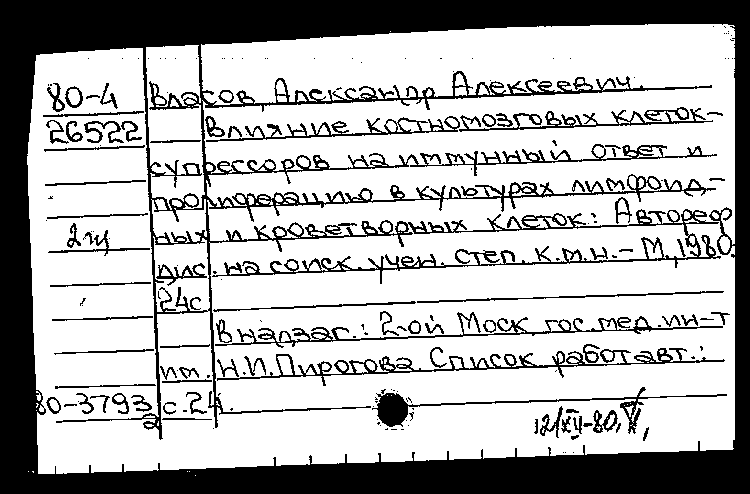 80-4 Власов, Александр Алексеевич.
26522 Влияние костномозговых клеток-
супрессоров на иммунный ответ и
пролиферацию в культурах лимфоид-
2 ных и кроветворных клеток: Автореф
дис. на соиск. учен. степ. к.м.н. - М., 1980.
24с
В надзаг.: 2-ой Моск. гос. мед. ин-т
им. Н.И.Пирогова. Список работ авт.:
80-3793 с.24.
2
12/XII-80,